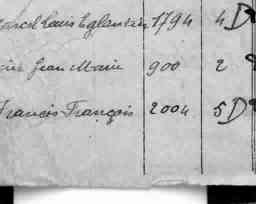 Marcel Louis Eglantin 1794 4 D
Jean Marie 900 2
Francis François 2004 5 D